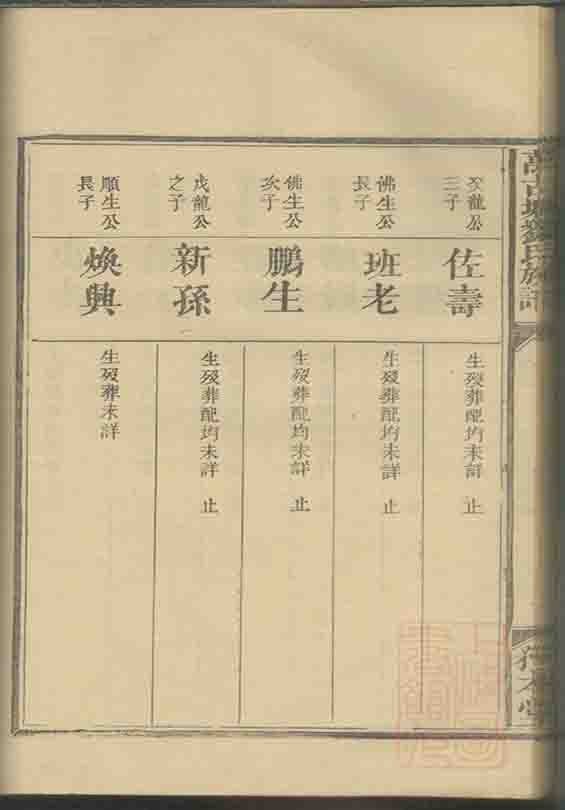 劉氏族譜
癸龍公
三子
佐壽
生歿葬配均未詳 止
佛生公
長子
班老
生歿葬配均未詳 止
佛生公
次子
鵬生
生歿葬配均未詳 止
戊龍公
之子
新孫
生歿葬配均未詳 止
順生公
長子
煥興
生歿葬未詳